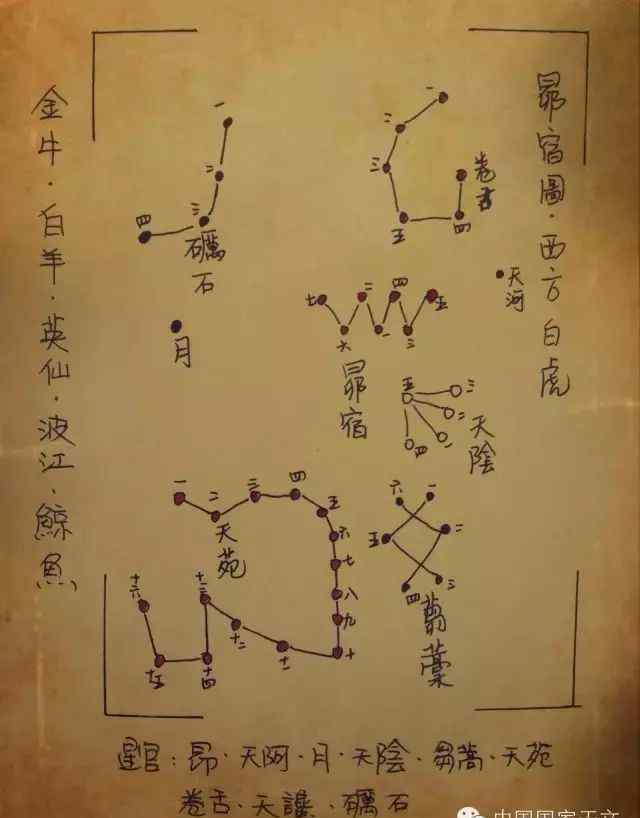 昴宿圖·西方白虎
金牛·白羊·英仙·波江·鲸魚
一
二
三
四
礪石
月
一
二
三
五
四
卷舌
天河
七
六
二
一
四
三
五
昴宿
五
三
二
一
四
天陰
六
一
五
二
四
三
蒭藁
一
二
三
四
五
六
七
八
九
十
十一
十二
十三
十四
十五
十六
天苑
星官:昴·天阿·月·天陰·芻蒿·天苑
卷舌·天讒·礪石
中国国家天文